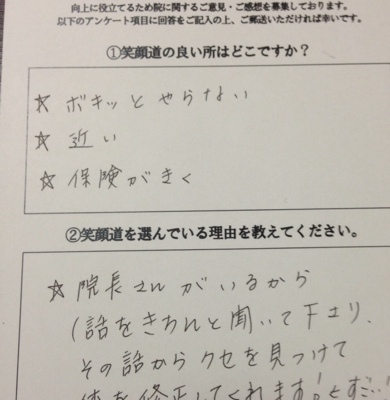 向上に役立てるため院に関するご意見・ご感想を募集しております。
以下のアンケート項目に回答をご記入の上、ご郵送いただければ幸いです。
①笑顔道の良い所はどこですか？
☆ ボキッとやらない
☆ 近い
☆ 保険がきく
②笑顔道を選んでいる理由を教えてください。
☆ 院長さんがいるから
(話をきちんと聞いて下さり、
その話からクセを見つけて
体を修正してくれます!